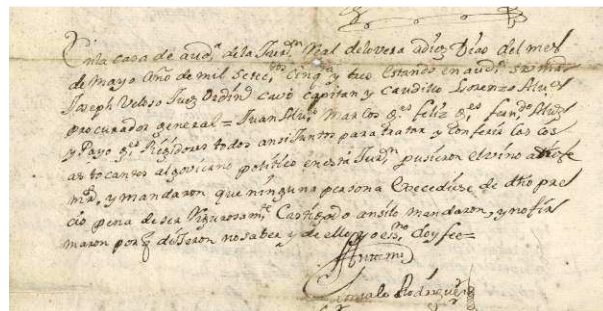 En la casa de aud.ª de la Jur.on Real de lovera a diez Dias del mes
de Mayo Año de mil Sete.os Cinq.ta y tres estando en aud.ª su mrd
Joseph Veloso Juez Ordin.º cavo capitan y Caudillo Lorenzo Alvrs
procurador general = Juan Alvrs Marcos g.es feliz g.es fran.co Alvrs
y Payo g.es Rexidores todos ansi Juntos para tratar y Conferir las cos
as tocantes al govierno politico en esta Jur.on pusieron el vino a
mrs, y mandaron que ninguna persona Excediese de dho pre
cio pena de ser Rigurosam.te Castigado ansilo mandaron, y no fir
maron porq dijeron no saber y de ello yo ess.no doy fee=
Antemi
Gonzalo Rodriguez